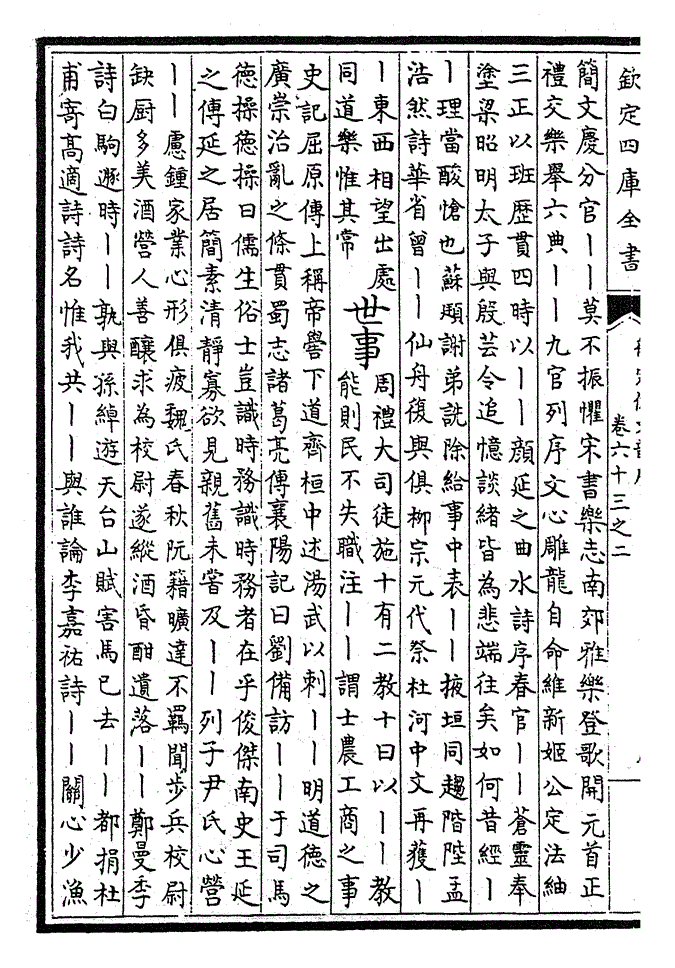 欽定四庫全書
卷六十三之二
簡文慶分官丨丨莫不振懼宋書樂志南郊雅樂登歌開元首正
禮交樂舉六典丨丨九官列序文心雕龍自命維新姬公定法紬
三正以班歴貫四時以丨丨顔延之曲水詩序春官丨丨蒼靈奉
塗梁昭明太子與殷芸令追憶談緒皆為悲端往矣如何昔經丨
丨理當酸愴也蘇頲謝弟詵除給事中表丨丨掖垣同趨階陛孟
浩然詩華省曾丨丨仙舟復與俱柳宗元代祭杜河中文再獲丨
丨東西相望出處
同道樂惟其常
世事
周禮大司徒施十有二教十曰以丨丨教
能則民不失職注丨丨謂士農工商之事
史記屈原傳上稱帝嚳下道齊桓中述湯武以刺丨丨明道德之
廣崇治亂之條貫蜀志諸葛亮傳襄陽記曰劉備訪丨丨于司馬
德操德操曰儒生俗士豈識時務識時務者在乎俊傑南史王延
之傳延之居簡素清靜寡欲凡見親舊未嘗及丨丨列子尹氏心營
丨丨慮鍾家業心形俱疲魏氏春秋阮籍曠達不羈聞步兵校尉
缺厨多美酒營人善釀求為校尉遂縱酒昏酣遺落丨丨鄭曼季
詩白駒遯時丨丨孰與孫綽遊天台山賦害馬已去丨丨都捐杜
甫寄高適詩詩名惟我共丨丨與誰論李嘉祐詩丨丨關心少漁